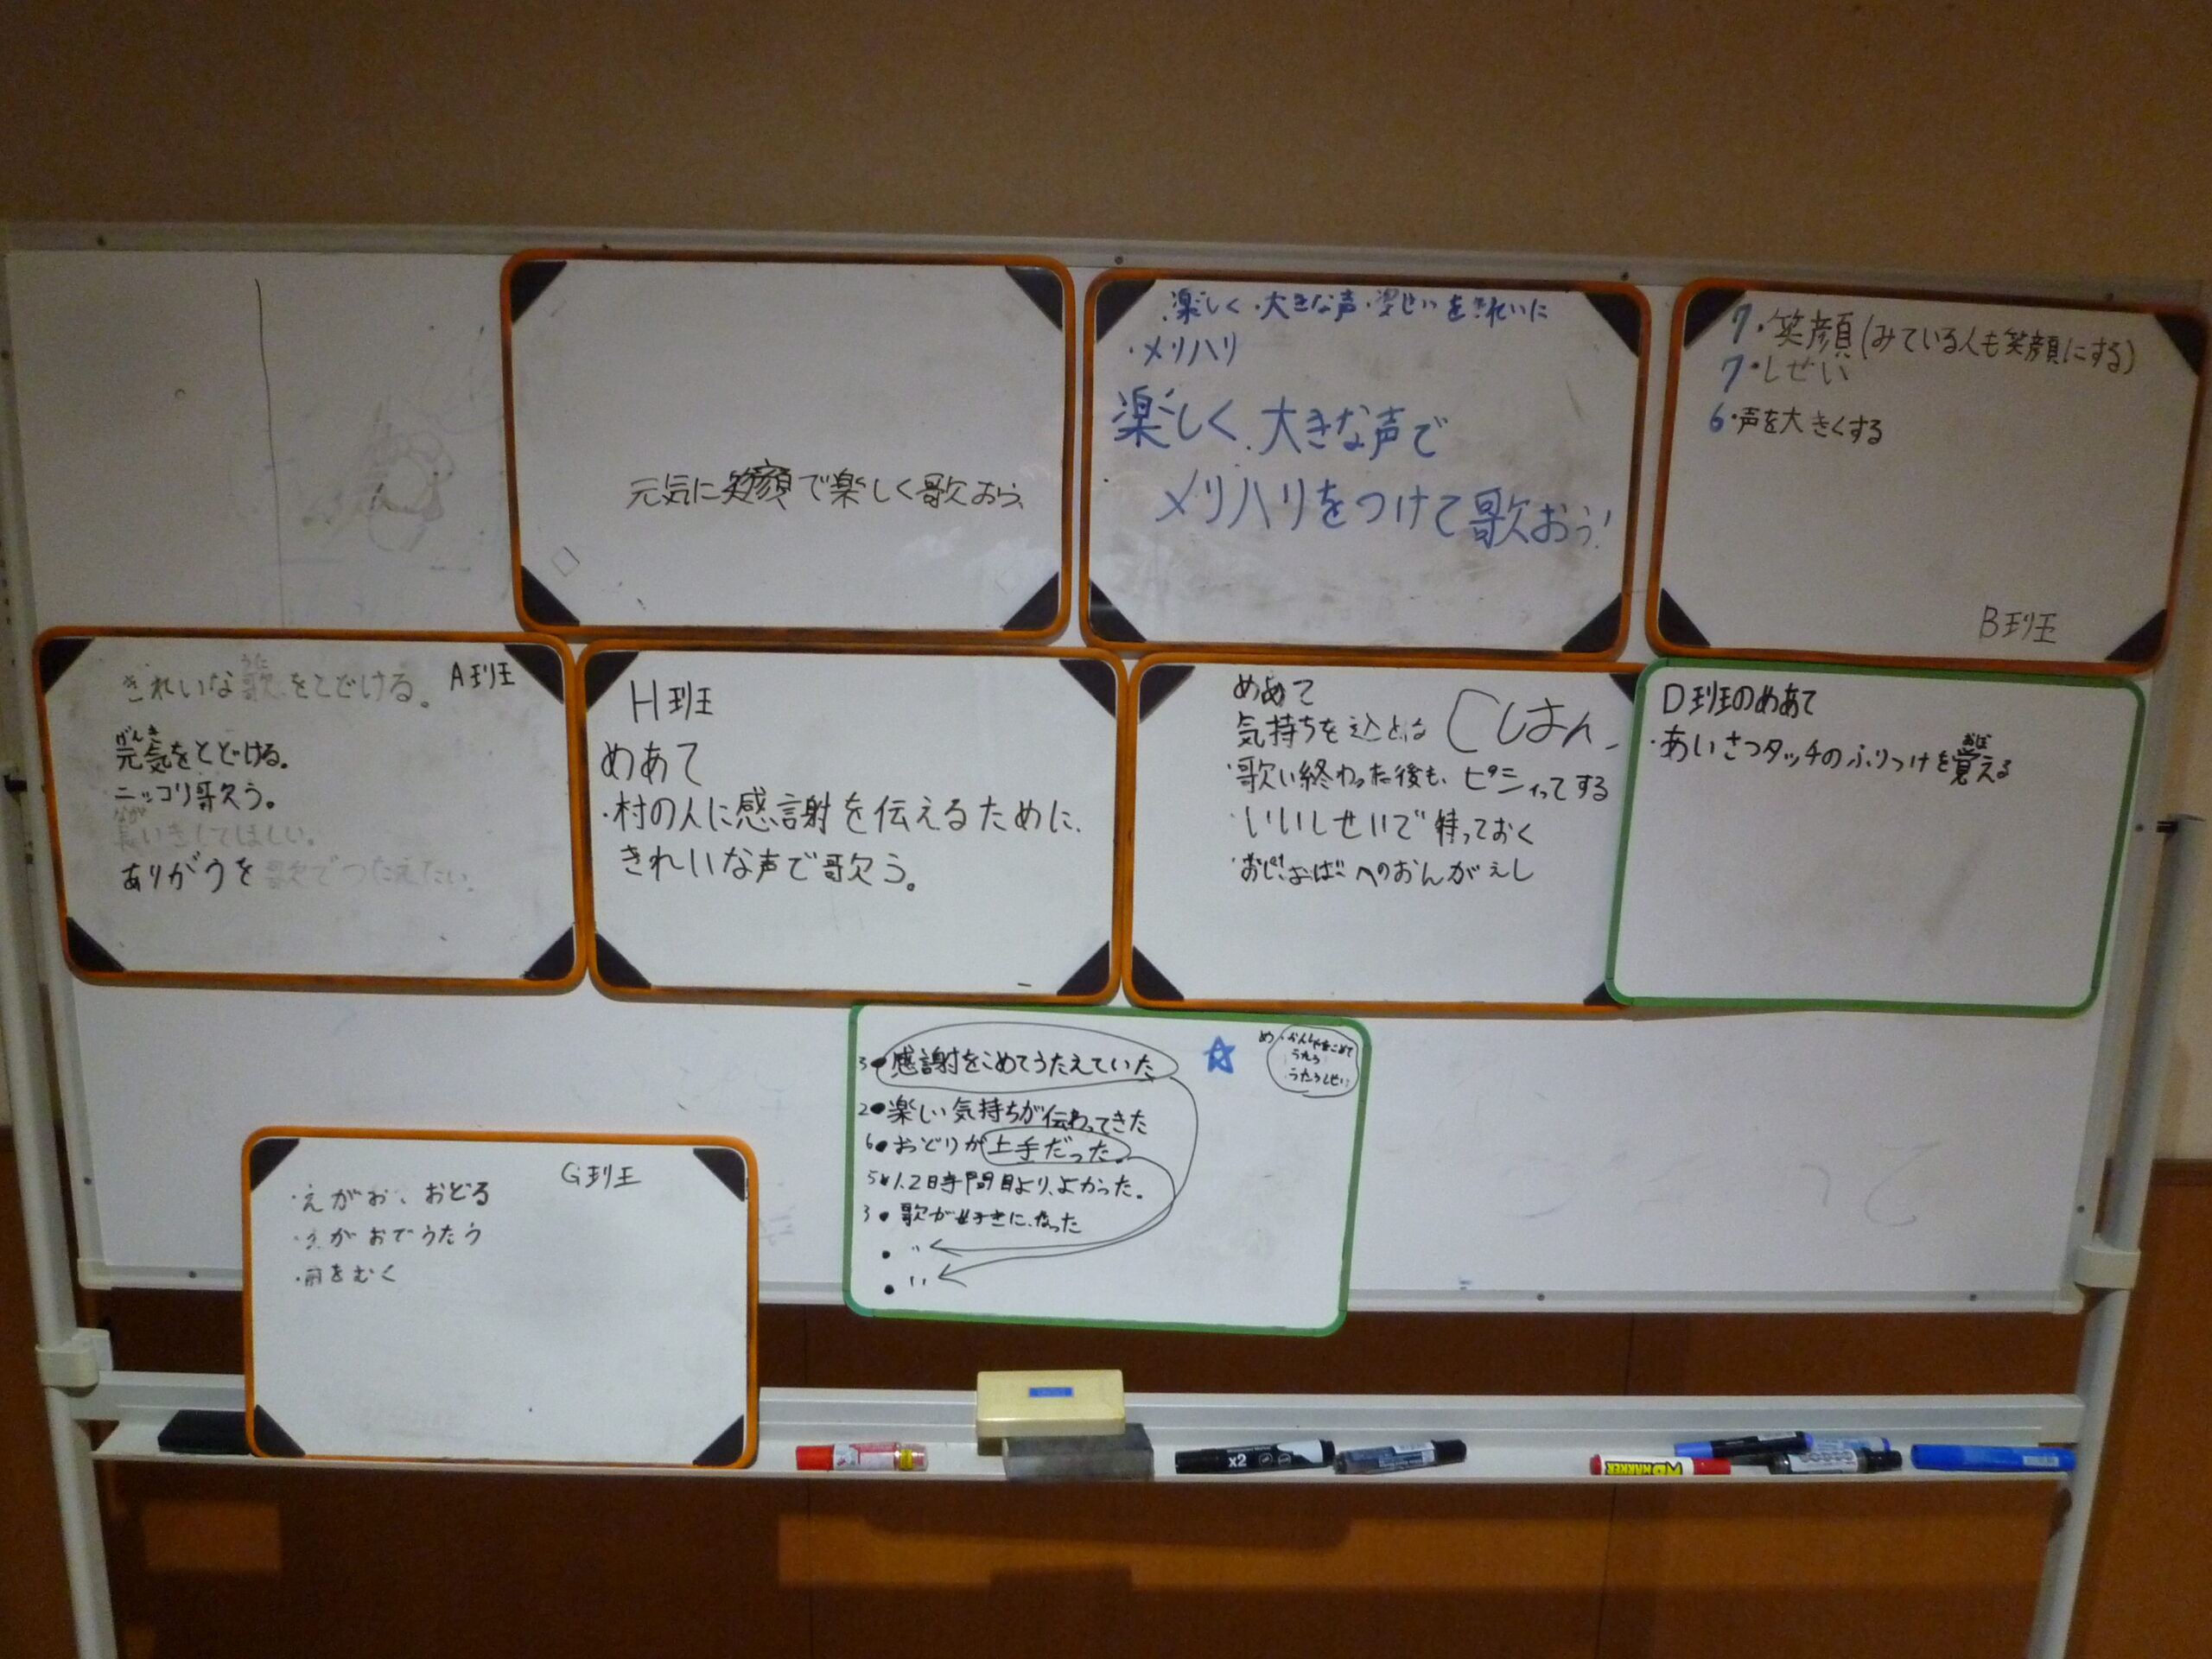 元気に笑顔で楽しく歌おう
・楽しく・大きな声・姿せいをきれいに
・メリハリ
楽しく、大きな声で
メリハリをつけて歌おう!
7・笑顔(みている人も笑顔にする)
7・しせい
6・声を大きくする
B班
A班
うた
きれいな歌をとどける。
げんき
元気をとどける。
ニッコリ歌う。
なが
長いきしてほしい。
ありがうを歌でつたえたい。
H班
めあて
・村の人に感謝を伝えるために、
きれいな声で歌う。
めあて
気持ちを込とは
Cしはん
・歌い終わった後も、ピシィってする
・いいしせいで待っておく
・おじ、おばへのおんがえし
D班のめあて
おぼ
・あいさつタッチのふりつけを覚える
3●感謝をこめてうたえていた
2●楽しい気持ちが伝わってきた
6●おどりが上手だった。
5●1.2時間目より、よかった。
3●歌が好きになった
● 〃
● 〃
め・かんしゃをこめて
うたう
G班
・えがお、おどる
・えがおでうたう
・前をむく
x2
MARKER